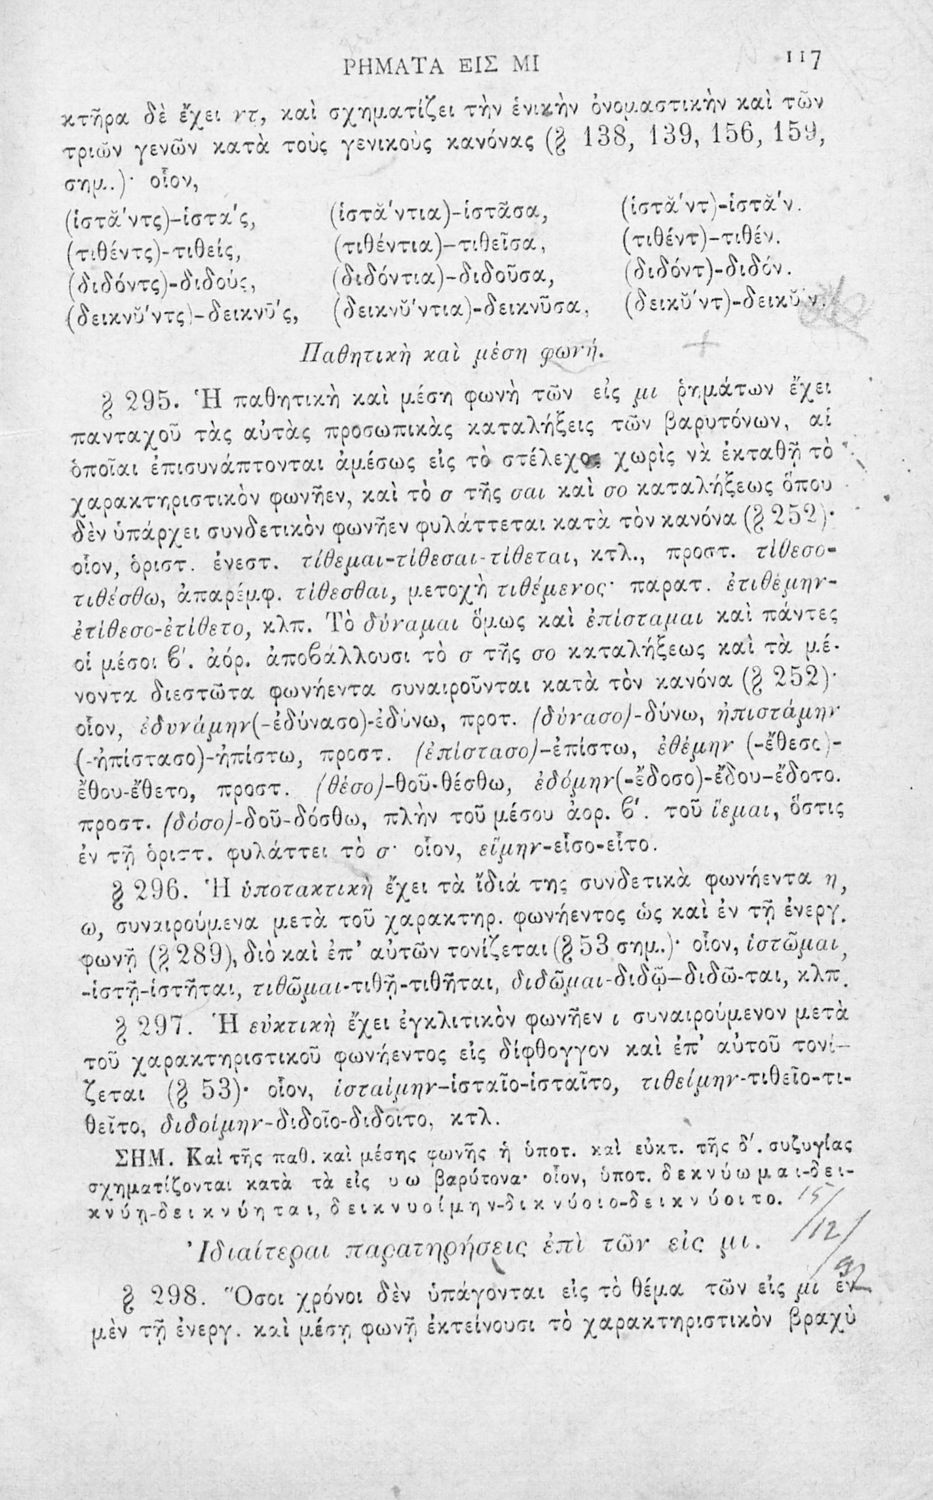 ΡΗΜΑΤΑ ΕΙΣ ΜΙ 117
κτῆρα δὲ ἔχει ντ, καὶ σχηματίζει τὴν ἑνικὴν ὀνομαστικὴν καὶ τῶν
τριῶν γενῶν κατὰ τοὺς γενικοὺς κανόνας (§ 138, 139, 156, 159,
σημ.)· οἷον,
(ἱστᾰ́ντς)-ἱστα´ς, (ἱστᾰ́ντια)-ἱστᾶσα, (ἱστᾰ́ντ)-ἱστᾰ́ν.
(τιθέντς)-τιθείς, (τιθέντια)-τιθεῖσα, (τιθέντ)-τιθέν.
(διδόντς)-διδούς, (διδόντια)-διδοῦσα, (διδόντ)-διδόν.
(δεικνῠ́ντς)-δεικνῡ́ς, (δεικνῠ́ντια)-δεικνῦσα, (δεικῠ́ντ)-δεικῠ́ν.
Παθητικὴ καὶ μέση φωνή.
§ 295. Ἡ παθητικὴ καὶ μέση φωνὴ τῶν εἰς μι ῥημάτων ἔχει
πανταχοῦ τὰς αὐτὰς προσωπικὰς καταλήξεις τῶν βαρυτόνων, αἱ
ὁποῖαι ἐπισυνάπτονται ἀμέσως εἰς τὸ στέλεχος χωρὶς νὰ ἐκταθῇ τὸ
χαρακτηριστικὸν φωνῆεν, καὶ τὸ σ τῆς σαι καὶ σο καταλήξεως ὅπου
δὲν ὑπάρχει συνδετικὸν φωνῆεν φυλάττεται κατὰ τὸν κανόνα (§ 252)·
οἷον, ὁριστ. ἐνεστ. τίθεμαι-τίθεσαι-τίθεται, κτλ., προστ. τίθεσο-
τιθέσθω, ἀπαρέμφ. τίθεσθαι, μετοχὴ τιθέμενος· παρατ. ἐτιθέμην-
ἐτίθεσο-ἐτίθετο, κλπ. Τὸ δύναμαι ὅμως καὶ ἐπίσταμαι καὶ πάντες
οἱ μέσοι ϐ'. ἀόρ. ἀποϐάλλουσι τὸ σ τῆς σο καταλήξεως καὶ τὰ μέ-
νοντα διεστῶτα φωνήεντα συναιροῦνται κατὰ τὸν κανόνα (§ 252)·
οἷον, ἐδυνάμην(-ἐδύνασο)-ἐδύνω, προτ. (δύνασο)-δύνω, ἠπιστάμην
(-ἠπίστασο)-ἠπίστω, προστ. (ἐπίστασο)-ἐπίστω, ἐθέμην (-ἔθεσο)-
ἔθου-ἔθετο, προστ. (θέσο)-θοῦ-θέσθω, ἐδόμην(-ἔδοσο)-ἔδου-ἔδοτο.
προστ. (δόσο)-δοῦ-δόσθω, πλὴν τοῦ μέσου ἀορ. ϐ'. τοῦ ἵεμαι, ὅστις
ἐν τῇ ὁριστ. φυλάττει τὸ σ· οἷον, εἵμην-εἷσο-εἷτο.
§ 296. Ἡ ὑποτακτικὴ ἔχει τὰ ἴδιά της συνδετικὰ φωνήεντα η,
ω, συναιρούμενα μετὰ τοῦ χαρακτηρ. φωνήεντος ὡς καὶ ἐν τῇ ἐνεργ.
φωνῇ (§ 289), διὸ καὶ ἐπ' αὐτῶν τονίζεται (§ 53 σημ.)· οἷον, ἱστῶμαι,
-ἱστῇ-ἱστῆται, τιθῶμαι-τιθῇ-τιθῆται, διδῶμαι-διδῷ-διδῶ-ται, κλπ.
§ 297. Ἡ εὐκτικὴ ἔχει ἐγκλιτικὸν φωνῆεν ι συναιρούμενον μετὰ
τοῦ χαρακτηριστικοῦ φωνήεντος εἰς δίφθογγον καὶ ἐπ' αὐτοῦ τονί-
ζεται (§ 53)· οἷον, ἱσταίμην-ἱσταῖο-ἱσταῖτο, τιθείμην-τιθεῖο-τι-
θεῖτο, διδοίμην-διδοῖο-διδοῖτο, κτλ.
ΣΗΜ. Καὶ τῆς παθ. καὶ μέσης φωνῆς ἡ ὑποτ. καὶ εὐκτ. τῆς δ'. συζυγίας
σχηματίζονται κατὰ τὰ εἰς υω βαρύτονα· οἷον, ὑποτ. δεκνύωμαι-δει-
κνύῃ-δεικνύηται, δεικνυοίμην-δικνύοιο-δεικνύοιτο.
15/
/12/
92
Ἰδιαίτεραι παρατηρήσεις ἐπὶ τῶν εἰς μι.
§ 298. Ὅσοι χρόνοι δὲν ὑπάγονται εἰς τὸ θέμα τῶν εἰς μι ἐν
μὲν τῇ ἐνεργ. καὶ μέσῃ φωνῇ ἐκτείνουσι τὸ χαρακτηριστικὸν βραχὺ